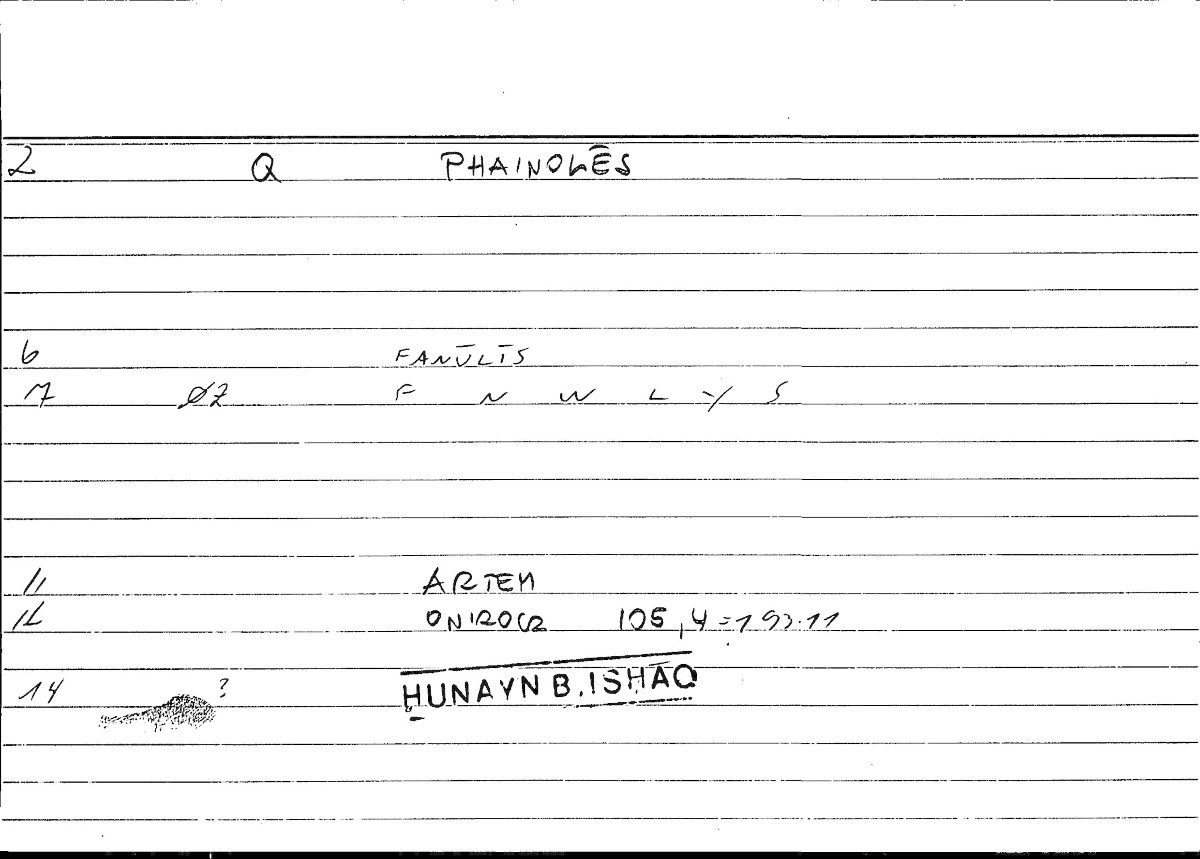 2 Q PHAINOLĒS
6 FANŪLĪS
7 ØZ F N W L Y S
11 ARTEM
12 ONIROCR 105,4=193.11
14 ? ḤUNAYN B. ISḤĀQ